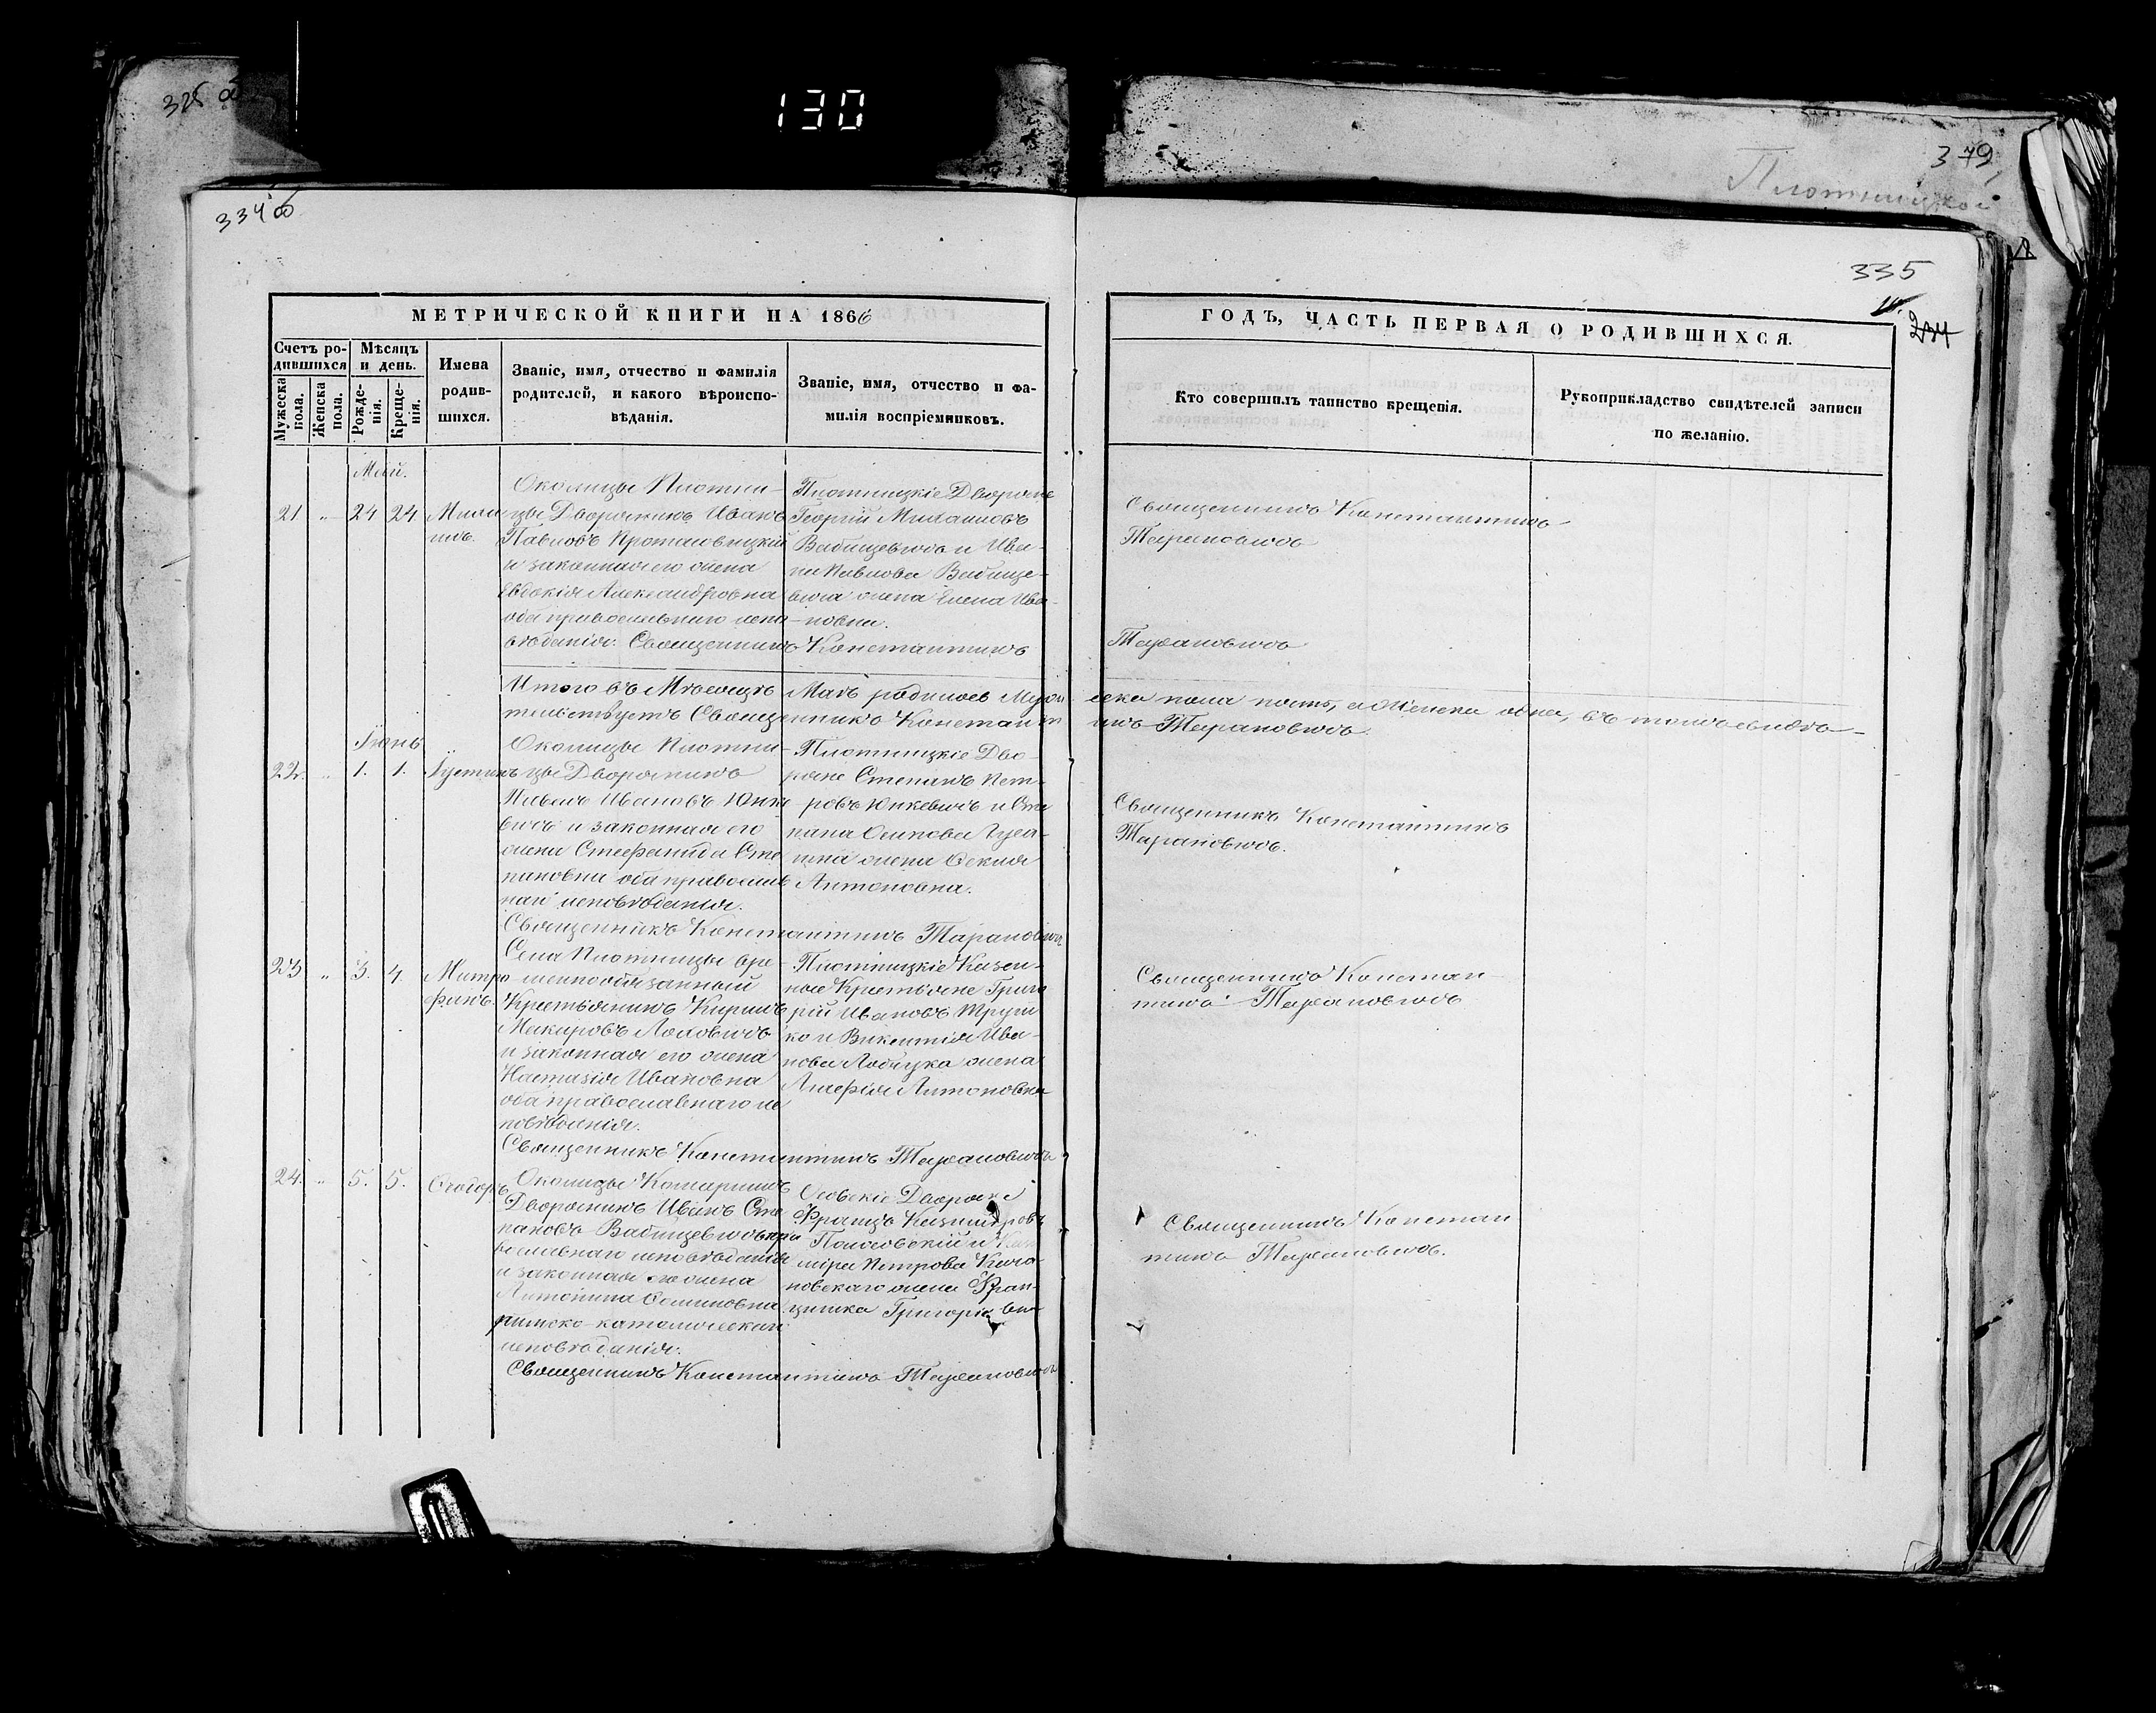 130
325 об
379
Плотницкой
334 об
335
234
МЕТРИЧЕСКОЙ КНИГИ НА 1866
ГОДЪ, ЧАСТЬ ПЕРВАЯ О РОДИВШИХСЯ.
Счетъ ро-
дившихся
Мужеска
пола.
Женска
пола.
Мѣсяцъ
и день.
Рожде-
нія.
Креще-
нія.
Имена
родив-
шихся.
Званіе, имя, отчество и фамилія
родителей, и какого вѣроиспо-
вѣданія.
Званіе, имя, отчество и фа-
милія воспріемниковъ.
Кто совершилъ таинство крещенія.
Рукоприкладство свидѣтелей записи
по желанію.
Май.
21 „ 24 24
Околицы Плотни-
цы Дворянинъ Иванъ
Павловъ Протасовицкій
и законная его жена
Евдокія Александровна
оба православнаго испо-
вѣданія. Священникъ Константинъ Тарановичъ
Плотницкіе Дворяне
Георгій Михаиловъ
Вабищевичъ и Ива-
на Павлова Вабище-
вича жена Елена Ива-
новна.
Священникъ Константинъ
Тарановичъ
Итого въ Мѣсяцѣ Маѣ родилось Муже
ска пола пять, а Женска одна, въ томъ свидѣ-
тельствуетъ Священникъ Константинъ Тарановичъ.
Іюнь
22. „ 1. 1. Іустинъ
Околицы Плотни-
цы Дворянинъ
Павелъ Ивановъ Юнке
вичъ и законная его
жена Стефанида Сте
пановна оба православ
наго исповѣданія.
Священникъ Константинъ Тарановичъ
Плотницкіе Дво-
ряне Степанъ Пет-
ровъ Юнкевичъ и Сте
пана Осипова
жена Фекла
Антоновна.
Священникъ Константинъ
Тарановичъ.
23 „ 3. 4. Митро
фанъ.
Села Плотницы вре-
меннообязанный
Крестьянинъ Кирилъ
Макаровъ Лоховичъ
и законная его жена
Настазія Ивановна
оба православнаго ис
повѣданія.
Священникъ Константинъ Тарановичъ
Плотницкіе Казен-
ные Крестьяне Григо
рій Ивановъ Труш
ко и Викентія Ива-
нова жена
Антоновна
Священникъ Констан-
тинъ Тарановичъ
24. „ 5. 5. Ѳеодоръ
Околицы Комаришъ
Дворянинъ Иванъ Сте
пановъ Вабищевичъ пра
вославнаго исповѣданія
и законная его жена
Антонина Осиповна
римско-католическаго
исповѣданія.
Священникъ Константинъ Тарановичъ
Осовскіе Дворяне
Францъ Казиміровъ
и
міра Петрова
новскаго жена Фран-
цишка Григорьевна
Священникъ Констан
тинъ Тарановичъ.